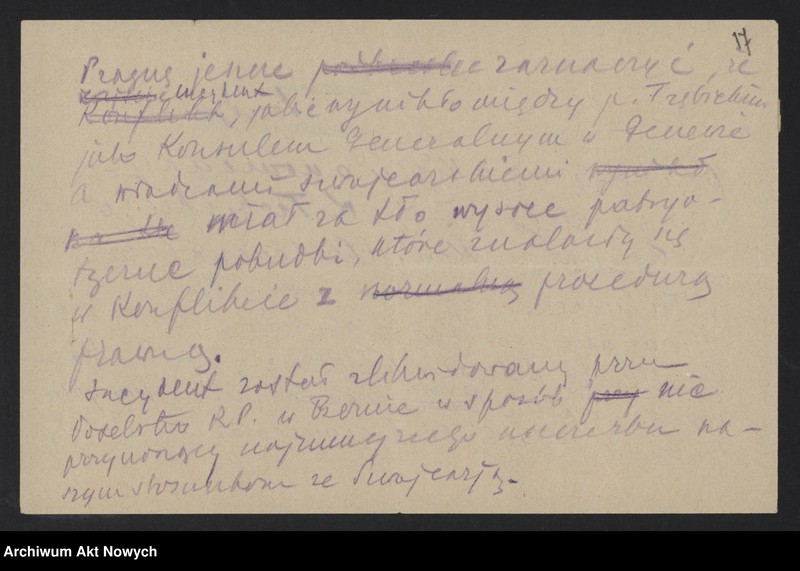 17
Pragnę jeszcze zaznaczyć, że
incydent
Konflikt, jaki wynikł między p. Trębickim
jako Konsulem Generalnym w Genewie
a władzami szwajcarskimi wynikł
na tle miał za tło wysoce patryo-
tyczne pobudki, które znalazły się
w Konflikcie z normalną procedurą
prawną.
Incydent został zlikwidowany przez
Poselstwo R.P. w Bernie w sposób przy nie
przynoszący najmniejszego uszczerbku na-
szym stosunkom ze Szwajcarją.
Archiwum Akt Nowych